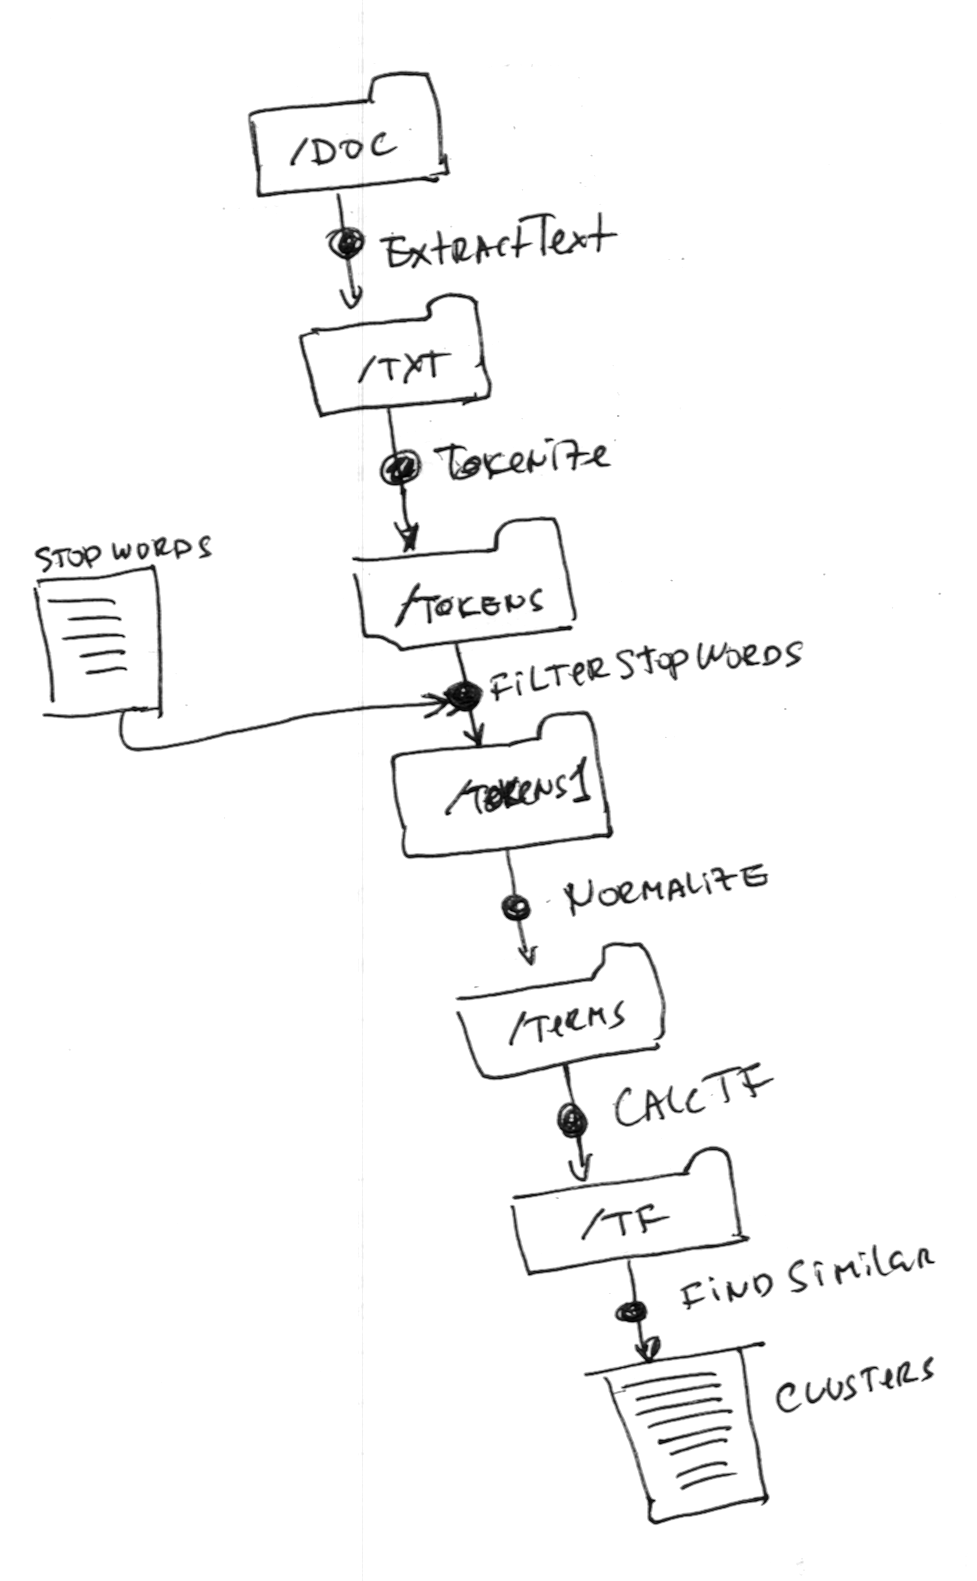 /DOC
ExtractText
/TXT
Tokenize
STOP WORDS
/TOKENS
FILTER STOP WORDS
/TOKENS1
NORMALIZE
/TERMS
CALCTF
/TF
FIND SIMILAR
CLUSTERS